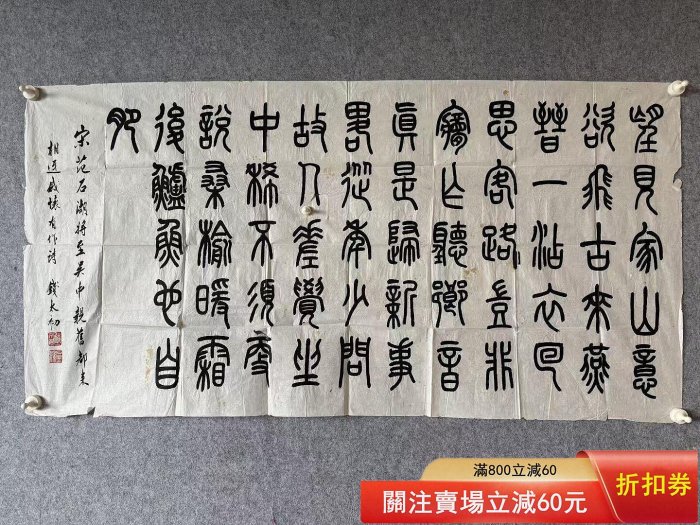 望見家山意
欲飛古來燕
晉一沾衣回
思客路豈非
夢乍聽鄉音
眞是歸新事
畧從年少問
故人差覺坐
中稀不須更
說桑榆暖霜
後鱸魚也自
肥
宋范石湖將至吳中親舊都來
相迓感懷有作詩 錢太初
滿800立減60
關注賣場立減60元
折扣券